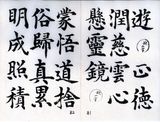 遊正德
潤慈雲心
懸靈鏡
蒙悟道捨
俗歸真累
明成照積